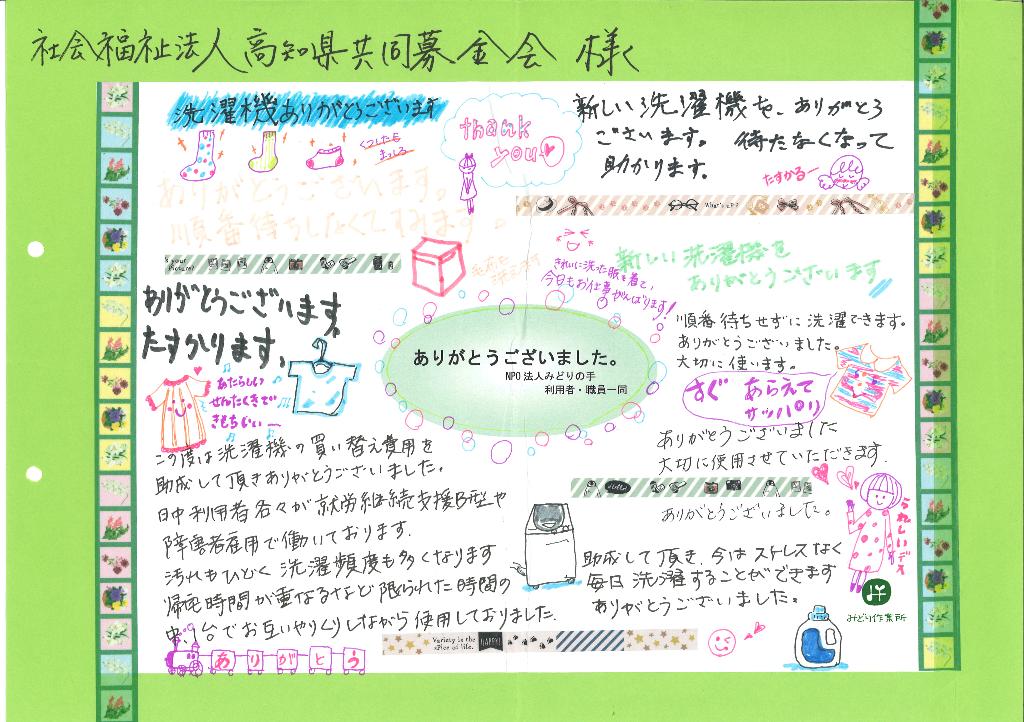 社会福祉法人高知県共同募金会 様
洗濯機ありがとうございます
くつした
まっしろ
thank
you
新しい洗濯機を、ありがとう
ございます。 待たなくなって
助かります。
たすかるー
ありがとうございます。
順番待ちしなくてすみます。
What's up?
きれいに洗った服を着て、
今日もお仕事がんばります!
新しい洗濯機を
ありがとうございます
ありがとうございます。
たすかります。
ありがとうございました。
NPO法人みどりの手
利用者・職員一同
順番待ちせずに洗濯できます。
ありがとうございました。
大切に使います。
すぐ あらえて
サッパリ
あたらしい
せんたくきで
きもちいい
ありがとうございました
大切に使用させていただきます。
この度は洗濯機の買い替え費用を
助成して頂きありがとうございました。
日中利用者各々が就労継続支援B型や
障害者雇用で働いております。
汚れもひどく洗濯頻度も多くなります
帰宅時間が重なるなど限られた時間の
中、1台でお互いやりくりしながら使用しておりました。
ありがとうございました。
うれしいデス
助成して頂き、今はストレスなく
毎日洗濯することができます
ありがとうございました。
みどり作業所
Variety is the
spice of life.
HAPPY!
ありがとう